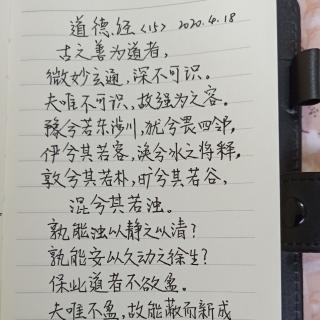 道德经〈15〉 2020.4.18
古之善为道者，
微妙玄通，深不可识。
夫唯不可识，故强为之容。
豫兮若冬涉川，犹兮畏四邻，
俨兮其若客，涣兮冰之将释，
敦兮其若朴，旷兮若谷，
混兮其若浊。
孰能浊以静之以清？
孰能安以久动之徐生？
保此道者不欲盈。
夫唯不盈，故能蔽而新成